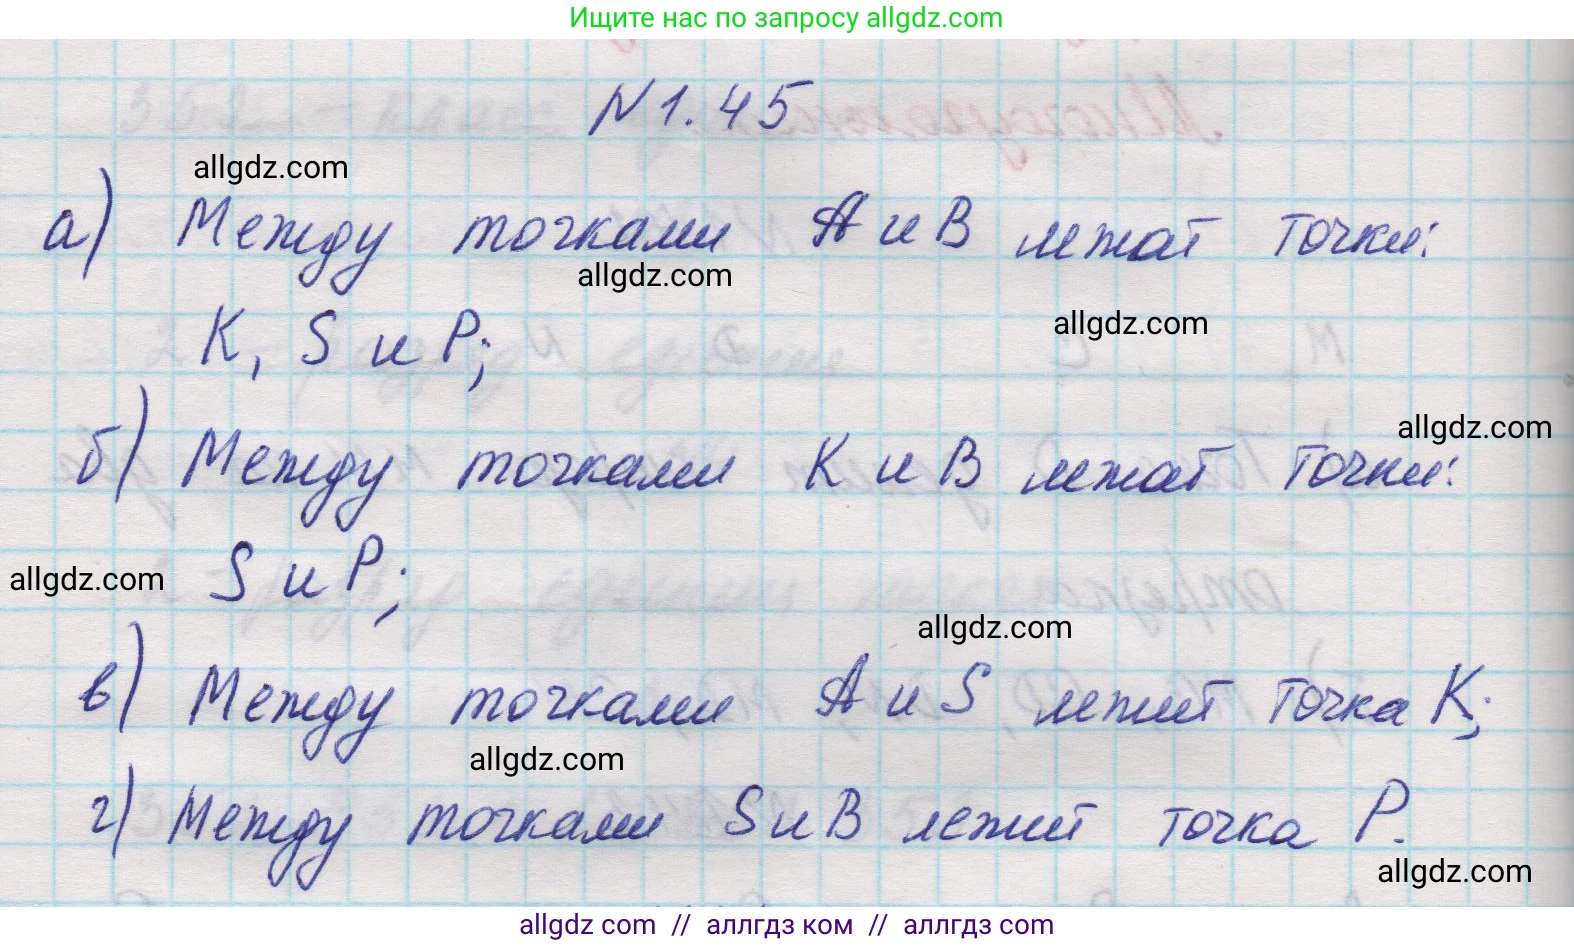 Ищите нас по запросу allgdz.com
N 1.45
allgdz.com
а) Между точками А и В лежат точки:
allgdz.com
K, S и P;
allgdz.com
allgdz.com
б) Между точками K и B лежат точки:
allgdz.com
S и P;
allgdz.com
в) Между точками А и S лежит точка K;
allgdz.com
г) Между точками S и B лежит точка P.
allgdz.com
allgdz.com // аллгдз ком // аллгдз.com